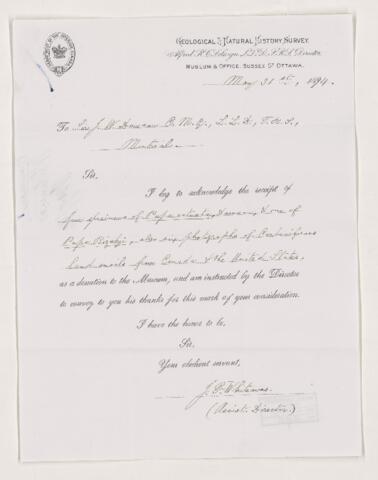 GEOLOGICAL & NATURAL HISTORY SURVEY.
Alfred R.C. Selwyn, L.L.D. F.R.S. Director
MUSEUM & OFFICE, SUSSEX ST OTTAWA.
May 31st, 1894.
To Sir J. W. Dawson C. M. G., L. L. D., F. R. S.,
Montreal.
Sir,
I beg to acknowledge the receipt of
four specimens of Dawsoni, & one of
also six photographs of Carboniferous
land snails from Canada & the United States,
as a donation to the Museum, and am instructed by the Director
to convey to you his thanks for this mark of your consideration.
I have the honor to be,
Sir,
Your obedient servant,
J. F. Whiteaves
(Assist. Director.)